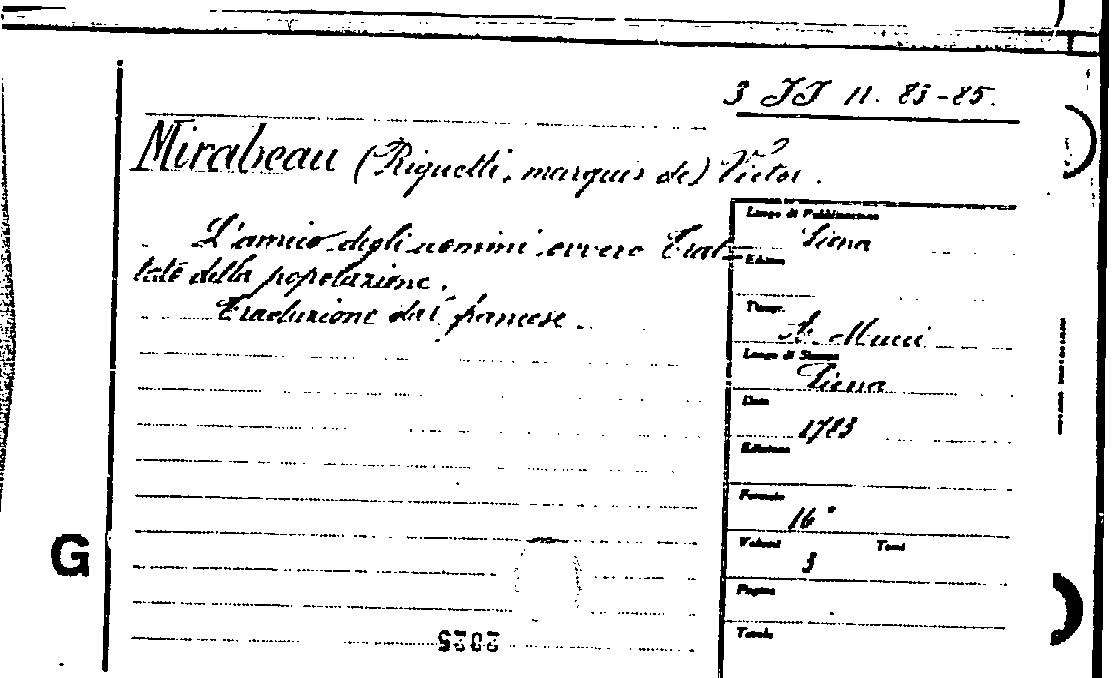 3 JJ 11. 83-85.
Mirabeau (Riquetti, marquis de) Victor.
L'amico degli uomini ovvero Trat-
tato della popolazione.
Traduzione dal francese.
Luogo di Pubblicazione
Siena
Editore
Tipogr.
Luogo di Stampa
Siena
Data
1783
Edizione
Formato
16°
Volumi Tomi
3
Pagine
Tavole
G
2025